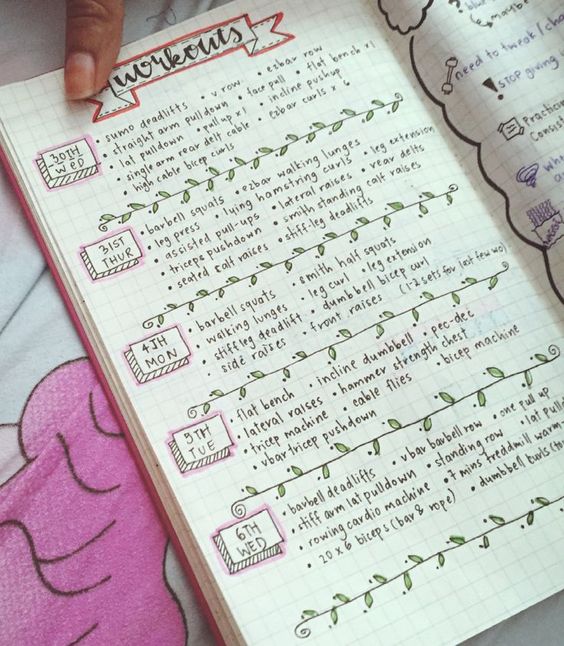 workouts
30TH WED
• sumo deadlifts • v row • ezbar row
• straight arm pulldown • face pull • flat bench x1
• lat pulldown • pull up x1 • incline pushup
• single arm rear delt cable • ezbar curls x 6
• high cable bicep curls
31ST THUR
• barbell squats • ezbar walking lunges • leg extension
• leg press • lying hamstring curls • rear delts
• assisted pull-ups • lateral raises
• triceps pushdown • smith standing calf raises
• seated calf raises • stiff-leg deadlifts
4TH MON
• barbell squats • smith half squats
• walking lunges • leg curl • leg extension
• stiff leg deadlift • dumbbell bicep curl
• side raises • front raises (1-2 sets for last few wo)
5TH TUE
• flat bench • incline dumbbell • pec-dec
• lateral raises • hammer strength chest
• tricep machine • cable flies • bicep machine
• vbar tricep pushdown
6TH WED
• barbell deadlifts • vbar barbell row • one pull up
• stiff arm lat pulldown • standing row • lat
• rowing cardio machine • 7 mins treddmill warm
• 20 x 6 biceps (bar & rope) • dumbbell curls
maybe
need to tweak /
STOP giving